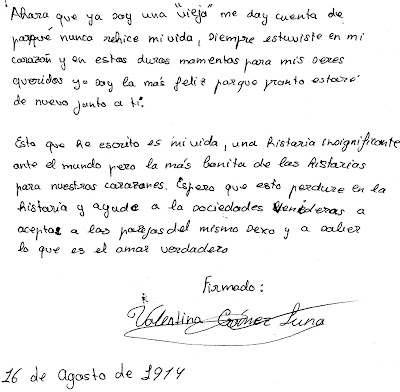 Ahora que ya soy una "vieja" me doy cuenta de
porqué nunca rehice mi vida, siempre estuviste en mi
corazón y en estos duros momentos para mis seres
queridos yo soy la más feliz porque pronto estaré
de nuevo junto a ti.
Esto que he escrito es mi vida, una historia insignificante
ante el mundo pero la más bonita de las historias
para nuestros corazones. Espero que esto perdure en la
historia y ayude a la sociedades venideras a
aceptar a las parejas del mismo sexo y a saber
lo que es el amor verdadero
Firmado:
Valentina Gómez Luna
16 de Agosto de 1914